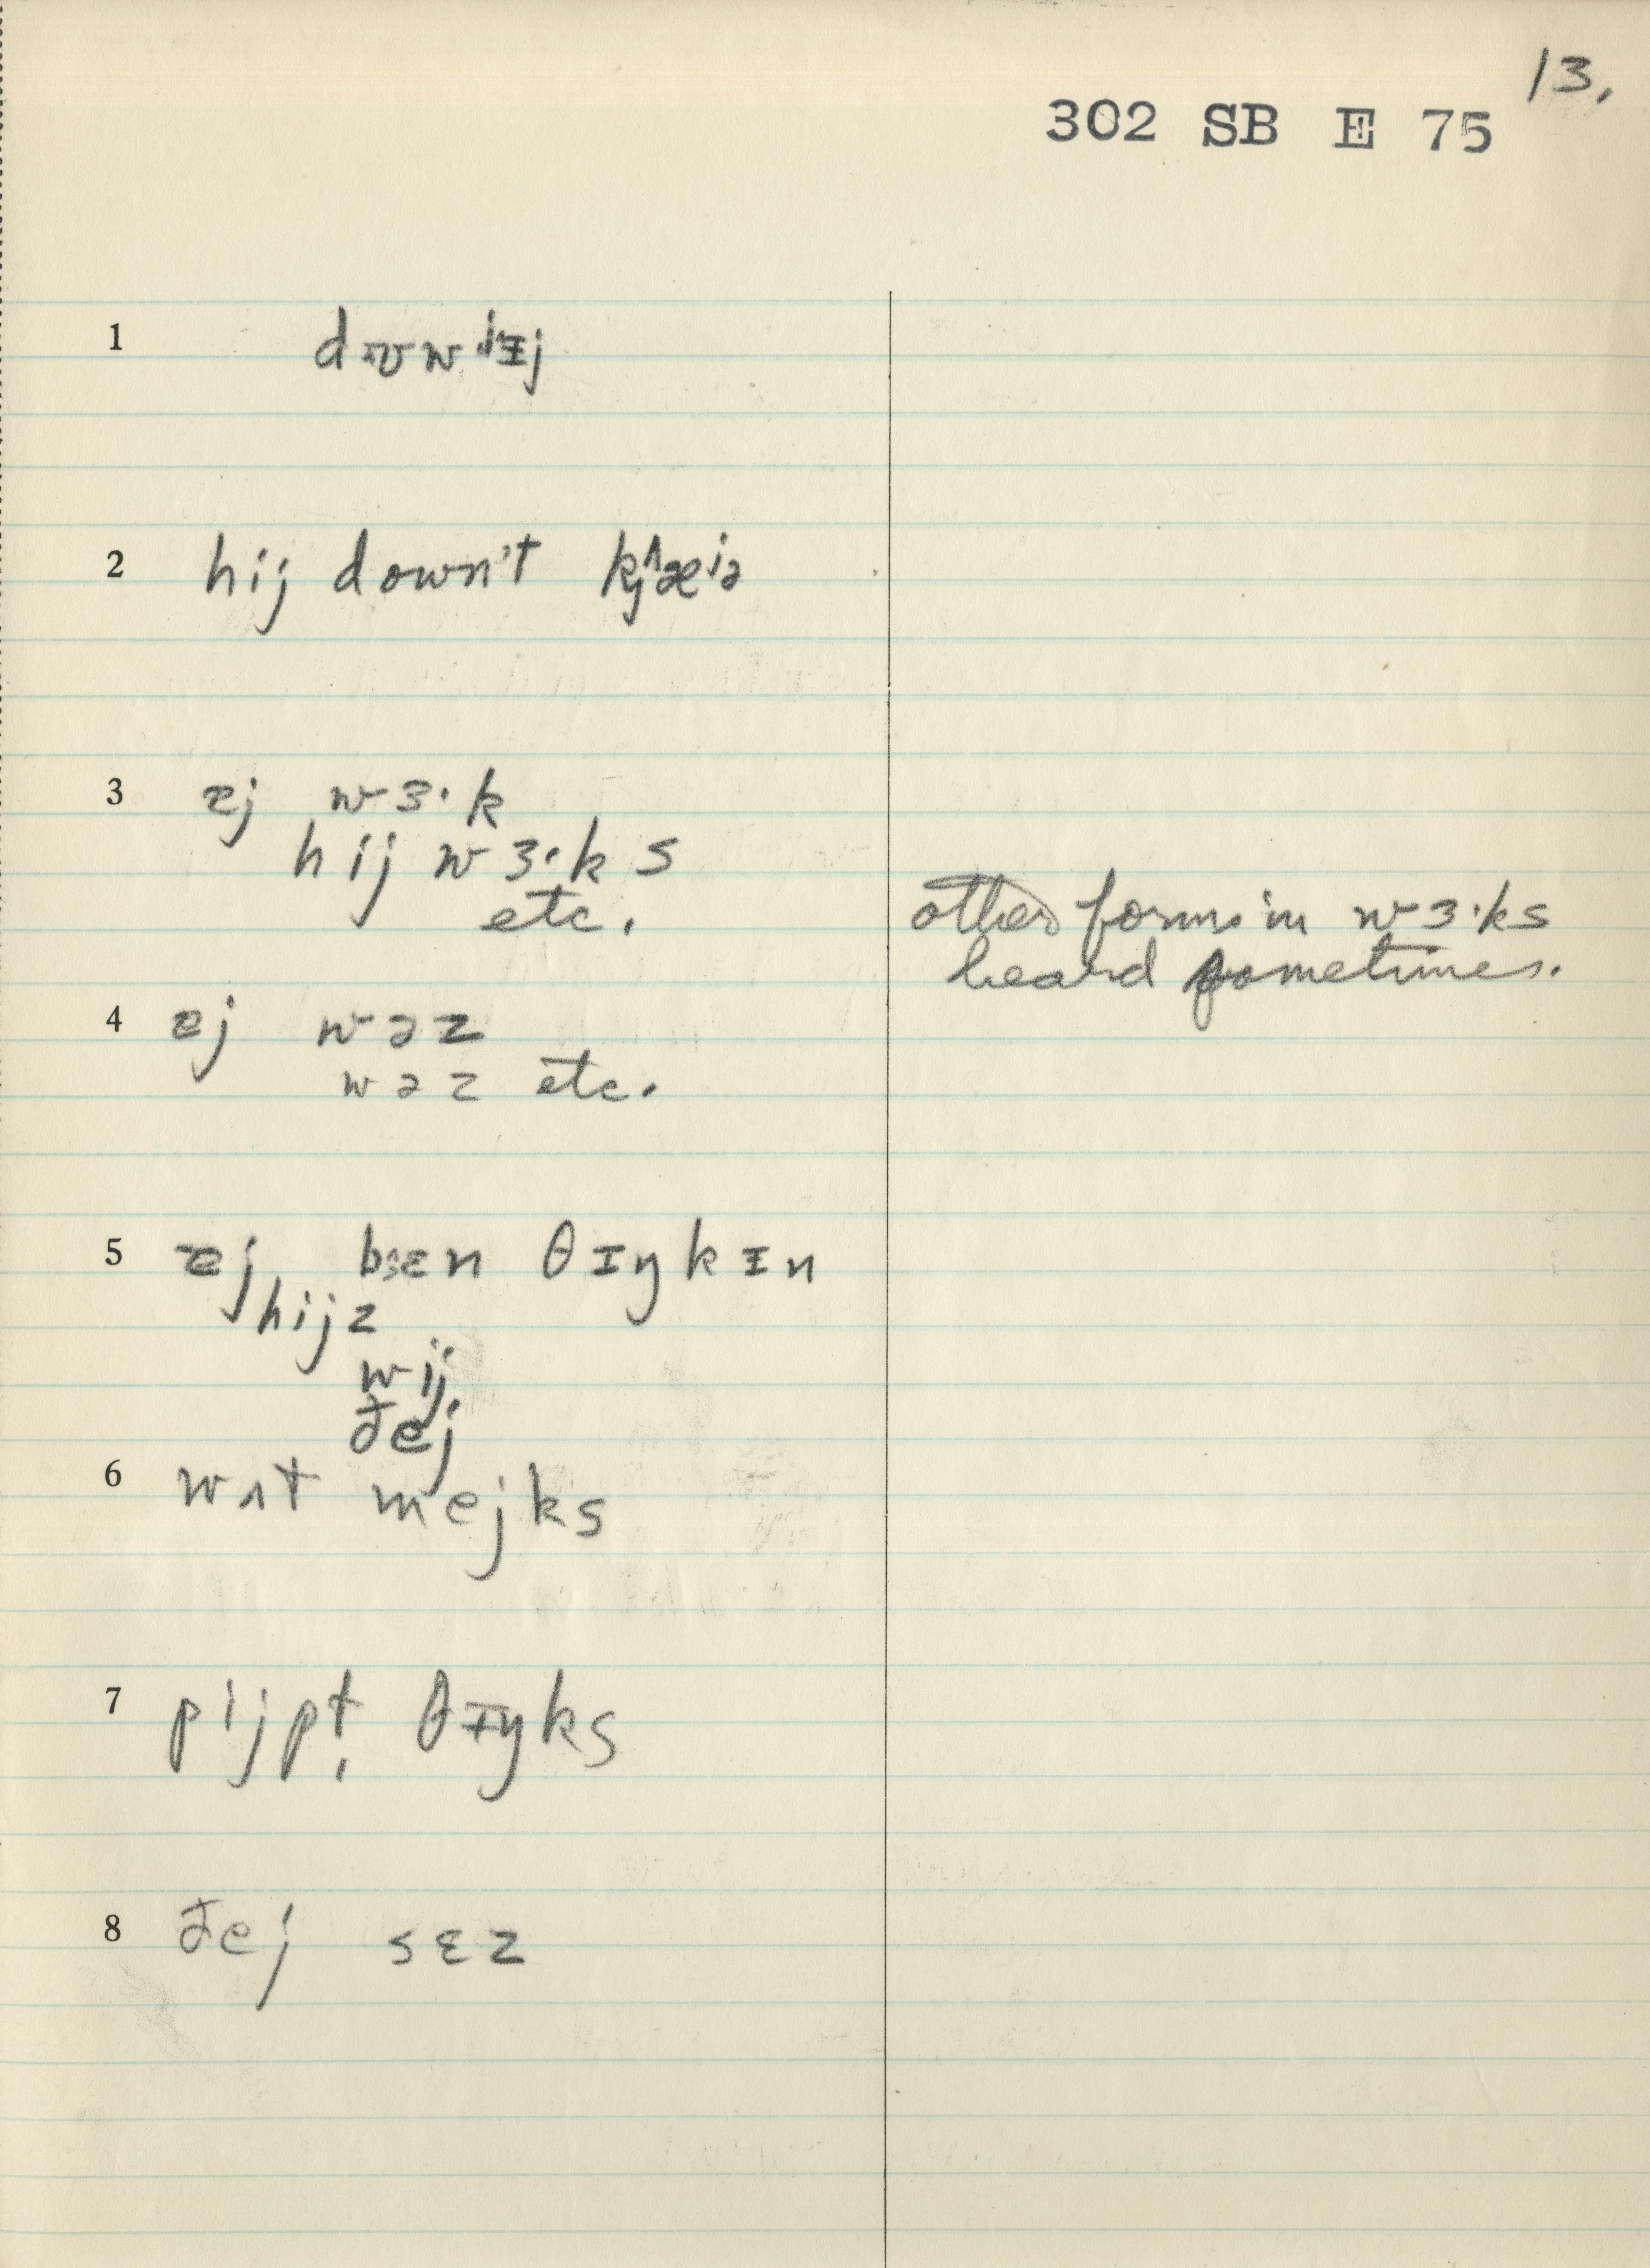 13.
302 SB E 75
1
2 hij downt
3 ɐj wɜ·k
hij wɜ·ks
etc.
other forms in wɜ·ks
heard sometimes.
4 ɐj wəz
wəz etc.
5 ɐj bɪ·ɛn θɪŋkɪn
hijz
wij
ðej
6 wʌt mejks
7 pijpt̩ θɪŋks
8 ðej sɛz